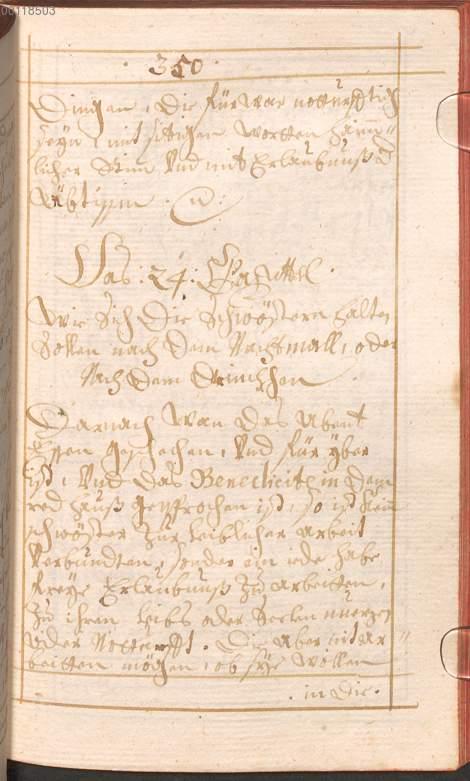 00118503
· 350 ·
Dingen, die fürwar notturfftich
seyn, mit sitigen wortten haim-
licher Stim Vnd mit Erlaubnuß d
Äbtißin
Das · 24 · Capittel ·
Wie Sich Die Schwöstern halten
Sollen nach dem Nachtmall, oder
Nach dem drinckhen
Darnach Wan das Abent
Eßen geschechen, Vnd für yber
ist, Vnd das Benedicite in dem
red hauß gesprochen ist, so ist kein
schwöster zur leiblicher arbeit
Verbundten, sonder ein iede habe
freye Erlaubnuß zu arbeitten,
zu ihren leibs oder Seelen nuzen
oder Notturfft. Die aber nit ar-
beitten mögen, ob sye wöllen
· in die ·